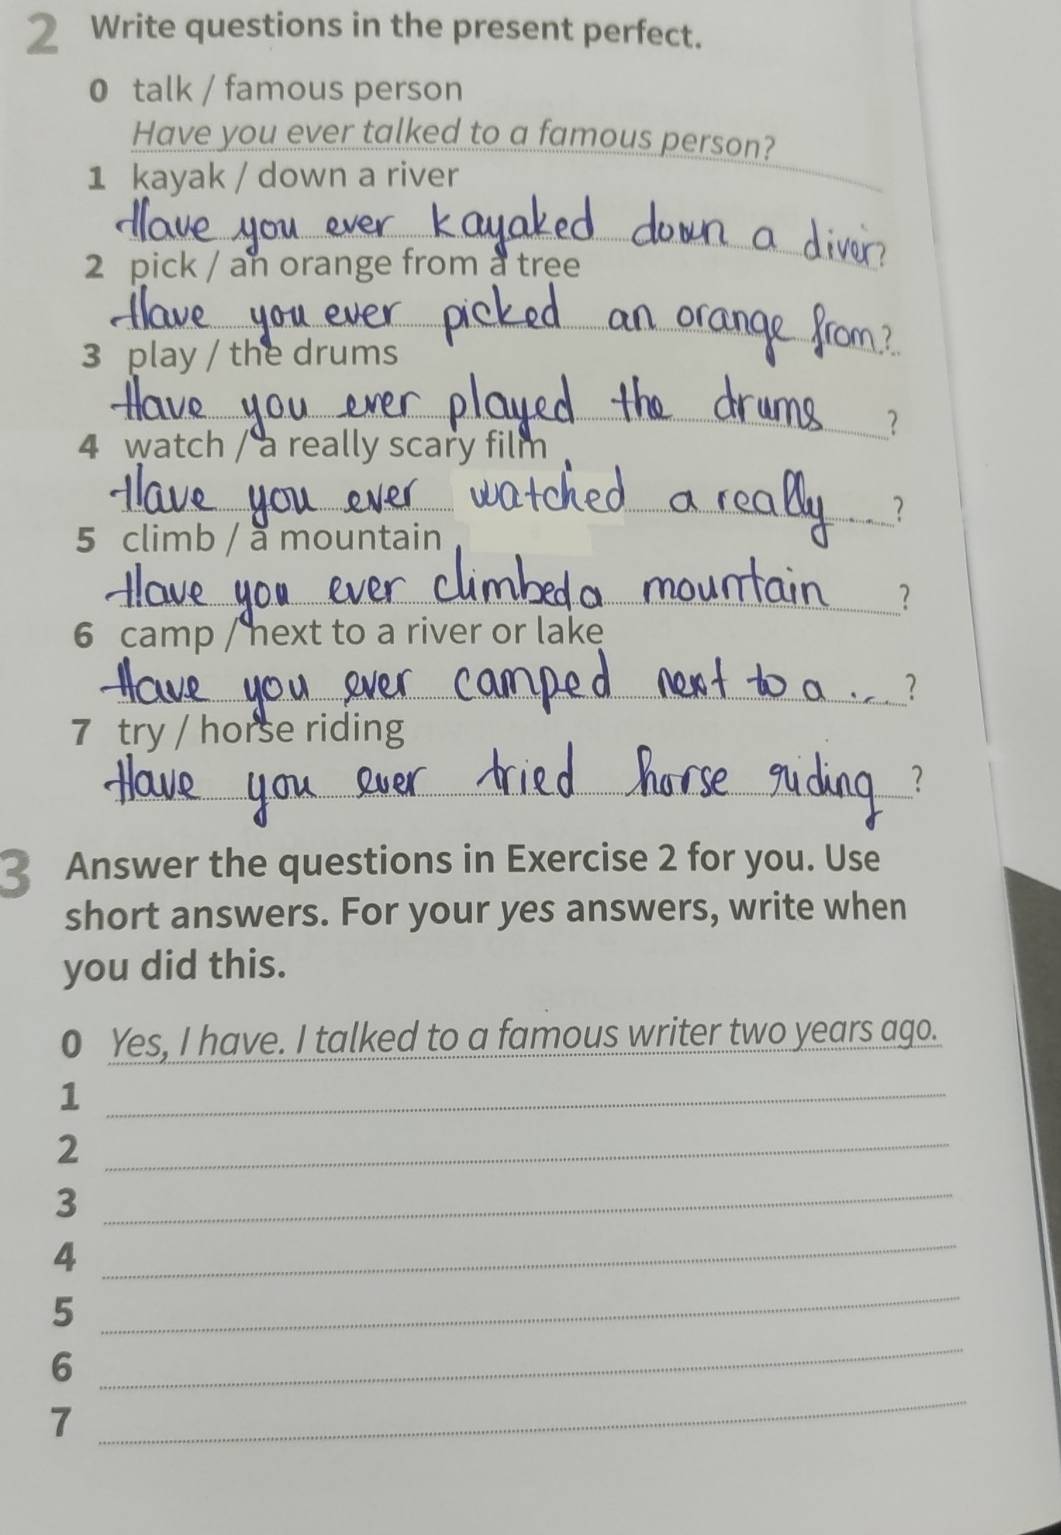 2 Write questions in the present perfect.
0 talk / famous person
Have you ever talked to a famous person?
1 kayak / down a river
Have you ever kayaked down a diver?
2 pick / an orange from a tree
Have you ever picked an orange from?
3 play / the drums
Have you ever played the drums ?
4 watch / a really scary film
Have you ever watched a really ... ?
5 climb / a mountain
Have you ever climbed a mountain ?
6 camp / next to a river or lake
Have you ever camped next to a ... ?
7 try / horse riding
Have you ever tried horse riding ?
3 Answer the questions in Exercise 2 for you. Use
short answers. For your yes answers, write when
you did this.
0 Yes, I have. I talked to a famous writer two years ago.
1
2
3
4
5
6
7